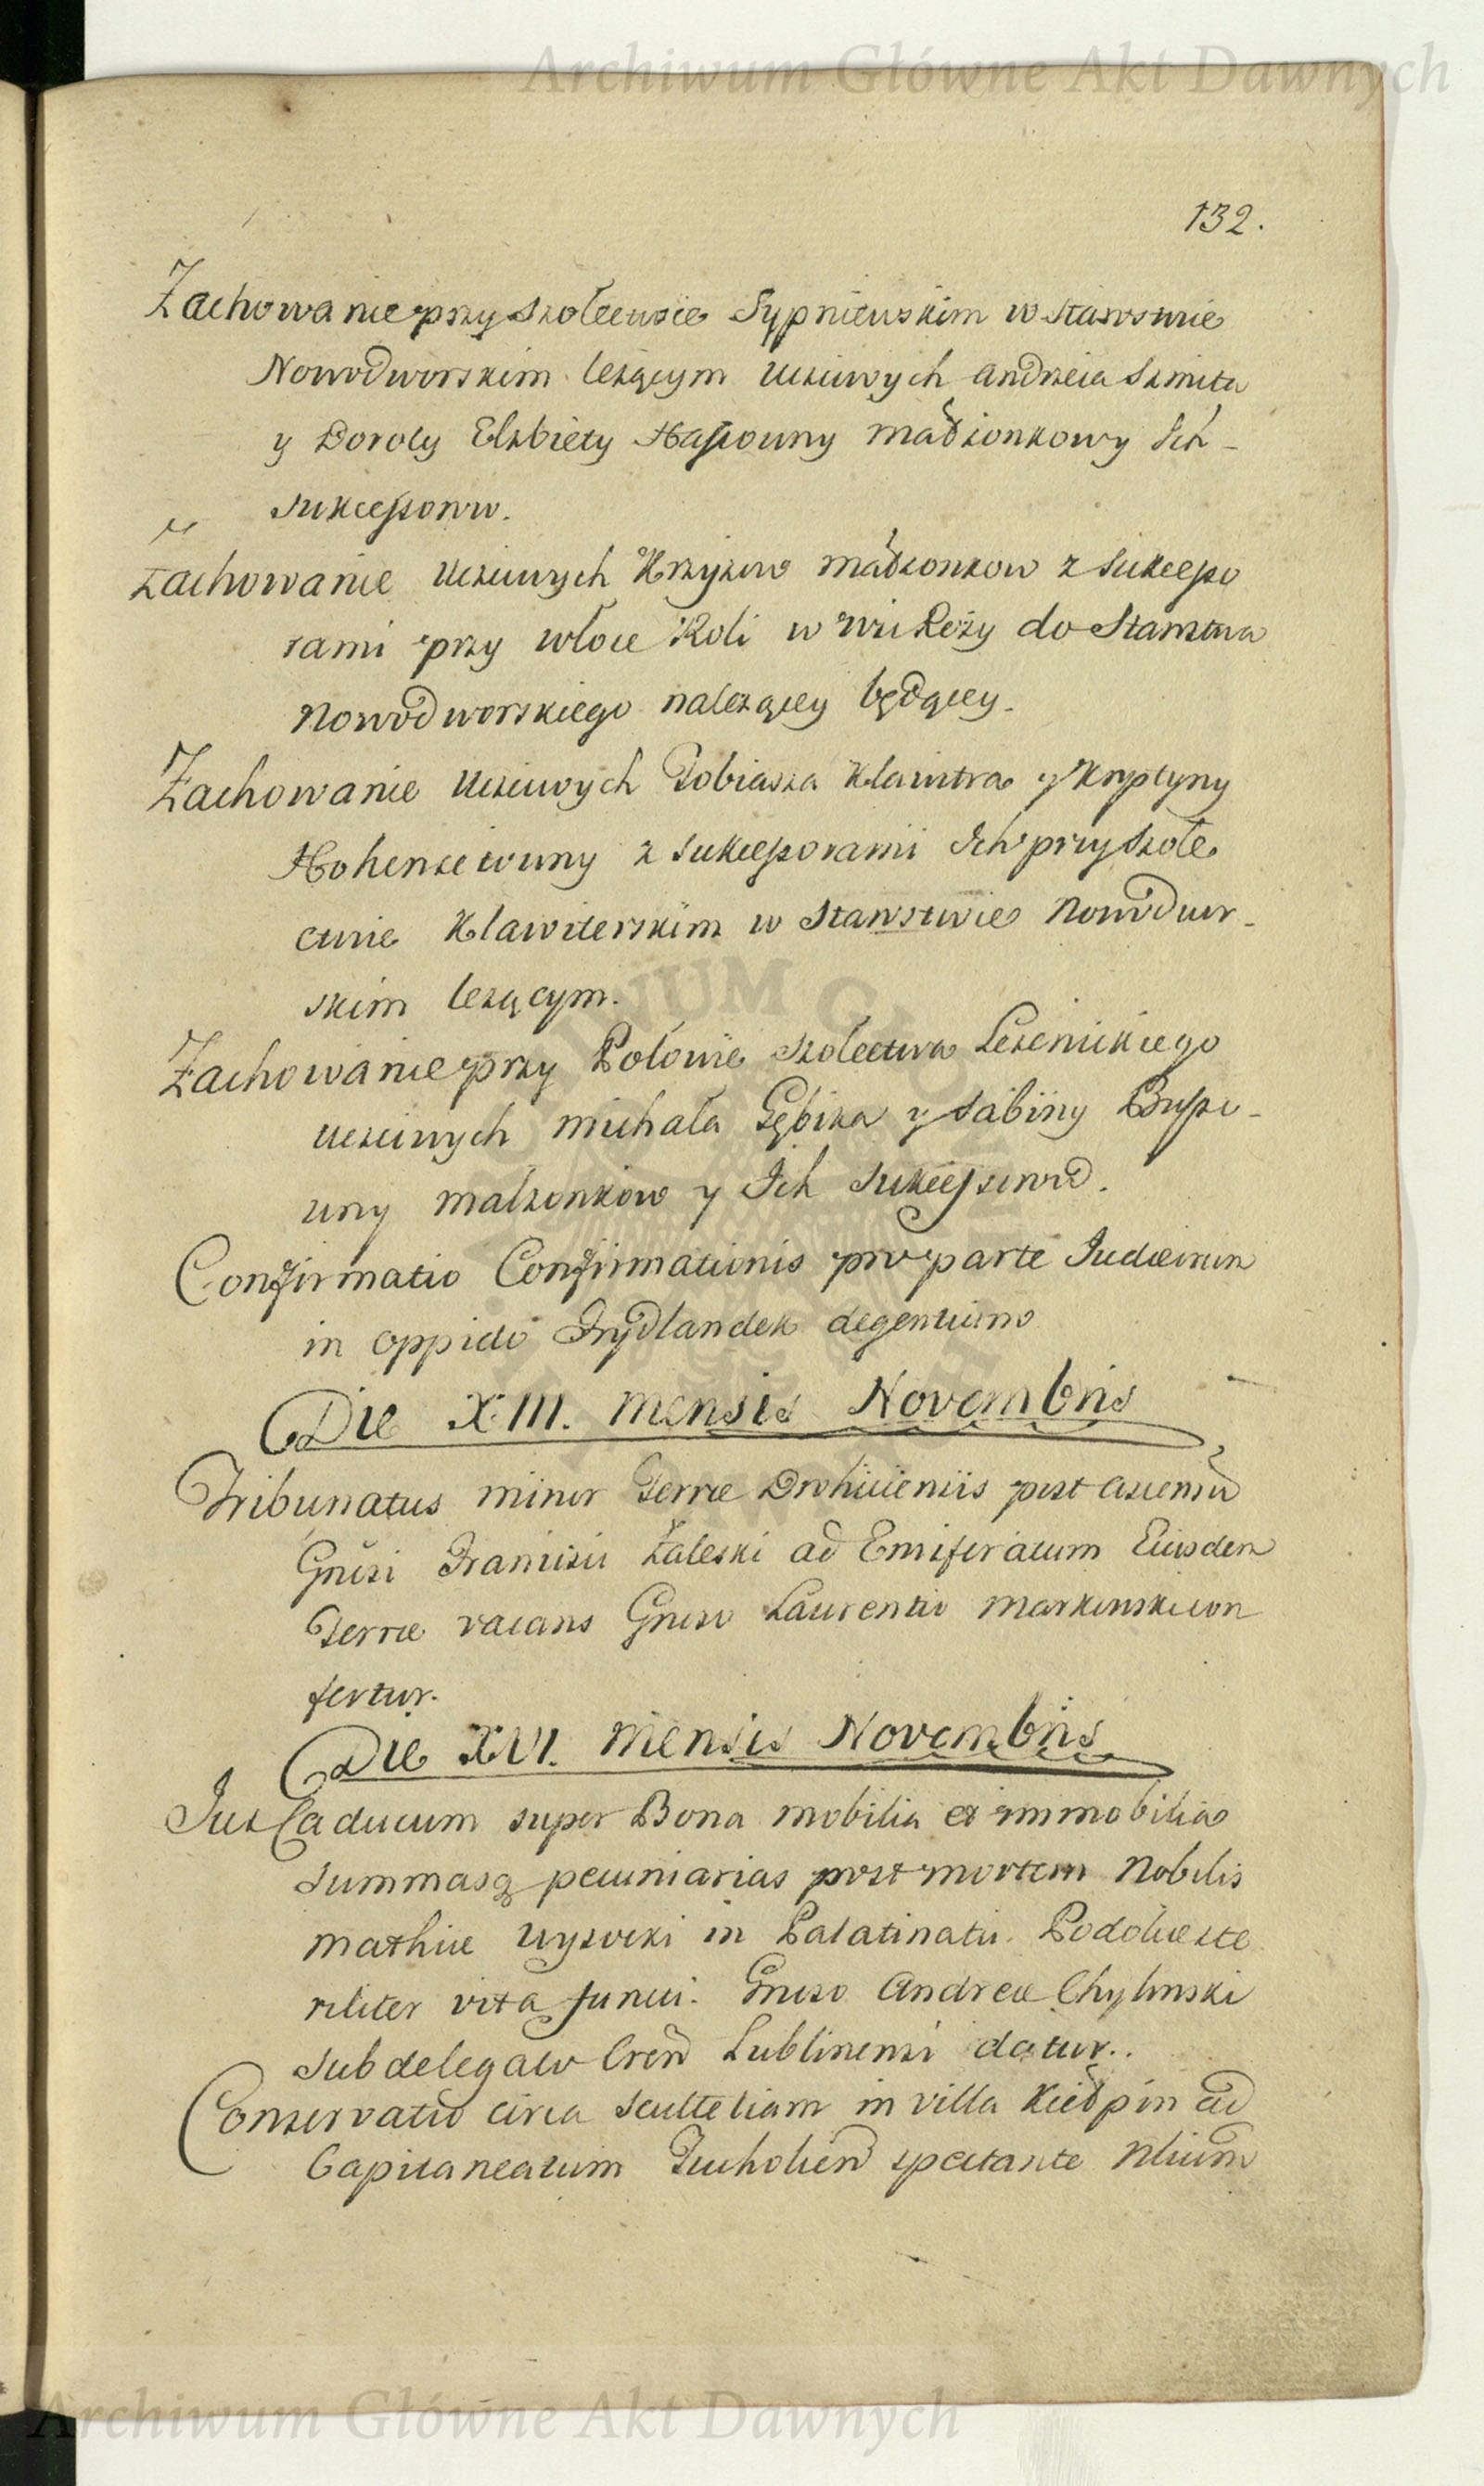 Archiwum Główne Akt Dawnych
132.
Zachowanie przy Szołectwie Sypniewskim w Starostwie
Nowodworskim leżącym Uczciwych Andrzeia Szmita
y Doroty Elżbiety Małżonkowy Ich
Sukcessorow.
Zachowanie Uczciwych Małżonkow z Sukcesso
rami przy włoce Roli w Wsi Róży do Starostwa
Nowodworskiego należącey będącey.
Zachowanie Uczciwych Tobiasza Klawitra y Krystyny
z Sukcessorami Ich przy Szołe
ctwie Klawiterskim w Starostwie Nowodwor-
skim leżącym.
Zachowanie przy Połowie Szołectwa Leżenickiego
Uczciwych Michała y Sabiny
małżonkow y Ich Sukcessorow.
Confirmatio Confirmationis pro parte Judæorum
in oppido Frydlandek degentium
Die XIII. Mensis Novembris
Tribunatus minor Terræ Drohiciensis post ascensũ
Gnẽsi Francisci Zaleski ad Ensiferatum Eiusdem
Terræ vacans Gnẽso Laurentio con
fertur.
Die XVI. Mensis Novembris
Jus Caducum super Bona mobilia et immobilia
Summasq; pecuniarias post mortem Nobilis
Mathiæ Wysocki in Palatinatu Podoliæ ste
riliter vita functi. Gnẽso Andreæ Chylinski
Subdelegato Cren̄ Lublinensi datur.
Conservatio circa Scultetiam in villa Kiełpin ad
Capitaneatum Tucholien̄ spectante Nlium̄
Archiwum Główne Akt Dawnych